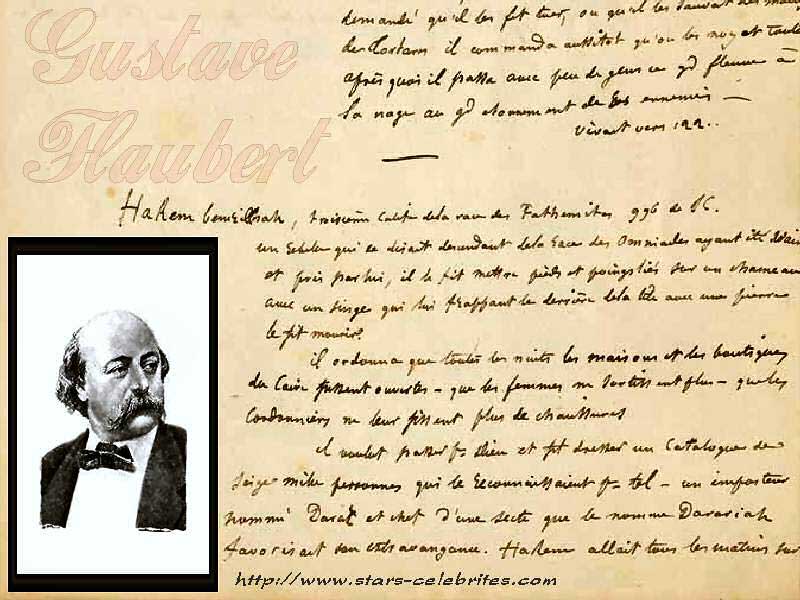 Gustave
Flaubert
demandé qu'il les fit tuer, ou qu'il les sauvat des
des Tartares il commanda aussitot qu'on les noyat
après quoi il passa avec peu de gens ce gd fleuve à
la nage au gd etonnement de ses ennemis —
vivait vers 122..
Hakem , troisième Calife de la race des Fathemites 996 de J.C.
un rebelle qui se disait descendant de la race des Ommiades ayant été
et pris par lui, il le fit mettre pieds et poings liés sur un chameau
avec un singe qui lui frappant le derrière de la tête avec une pierre
le fit mourir.
il ordonna que toutes les nuits les maisons et les boutiques
du Caire fussent ouvertes — que les femmes ne sortissent plus — que les
Cordonniers ne leur fissent plus de chaussures
il voulut passer pr Dieu et fit dresser un Catalogue de
Seize mille personnes qui le reconnaissaient pr tel — un imposteur
nommé et chef d'une secte que se nomme Darariah
favorisait son extravangance. Hakem allait tous les matins sur
http://www.stars-celebrites.com